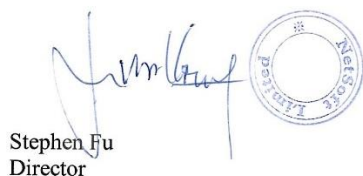 NetSoft Limited
*
Stephen Fu
Director